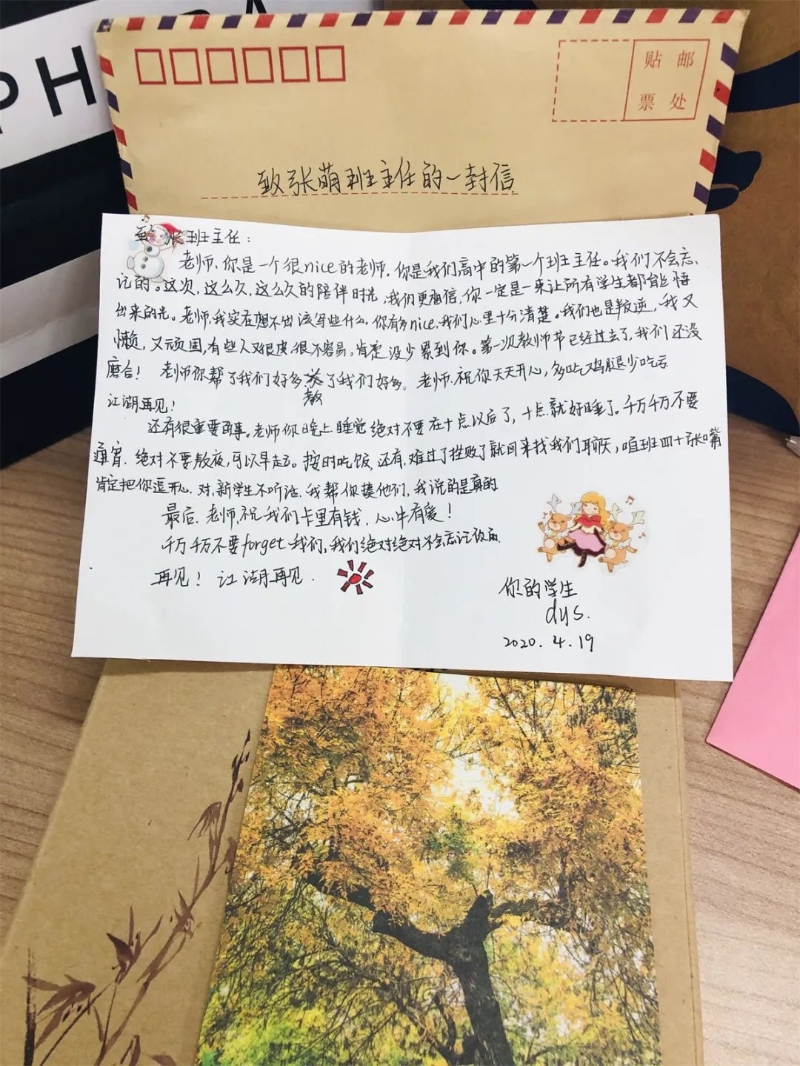 PH
贴 邮
票 处
致张萌班主任的一封信
班主任:
老师,你是一个很nice的老师,你是我们高中的第一个班主任。我们不会忘
记的。这次,这么久,这么久的陪伴时光,我们更相信,你一定是一来让所有学生都能悟
出来的光。老师,我实在想不出该写些什么,你有多nice,我们心里十分清楚。我们也是叛逆,我又
懒,又顽固,有些人又很皮,很不容易,肯定没少累到你。第一次教师节已经过去了,我们还没
磨合!老师你帮了我们好多,教了我们好多。老师,祝你天天开心,多吃鸡腿少吃
江湖再见!
还有很重要的事。老师你晚上睡觉绝对不要在十点以后了,十点就好睡了。千万千万不要
通宵,绝对不要熬夜,可以早起。按时吃饭,还有,难过了挫败了就回来找我们聊天,咱班四十张嘴
肯定把你逗开心。对,新学生不听话,我帮你揍他们,我说的是真的
最后,老师,祝我们卡里有钱,心中有爱!
千万千万不要forget我们,我们绝对绝对不会忘记你
再见!江湖再见.
你的学生
dys.
2020.4.19